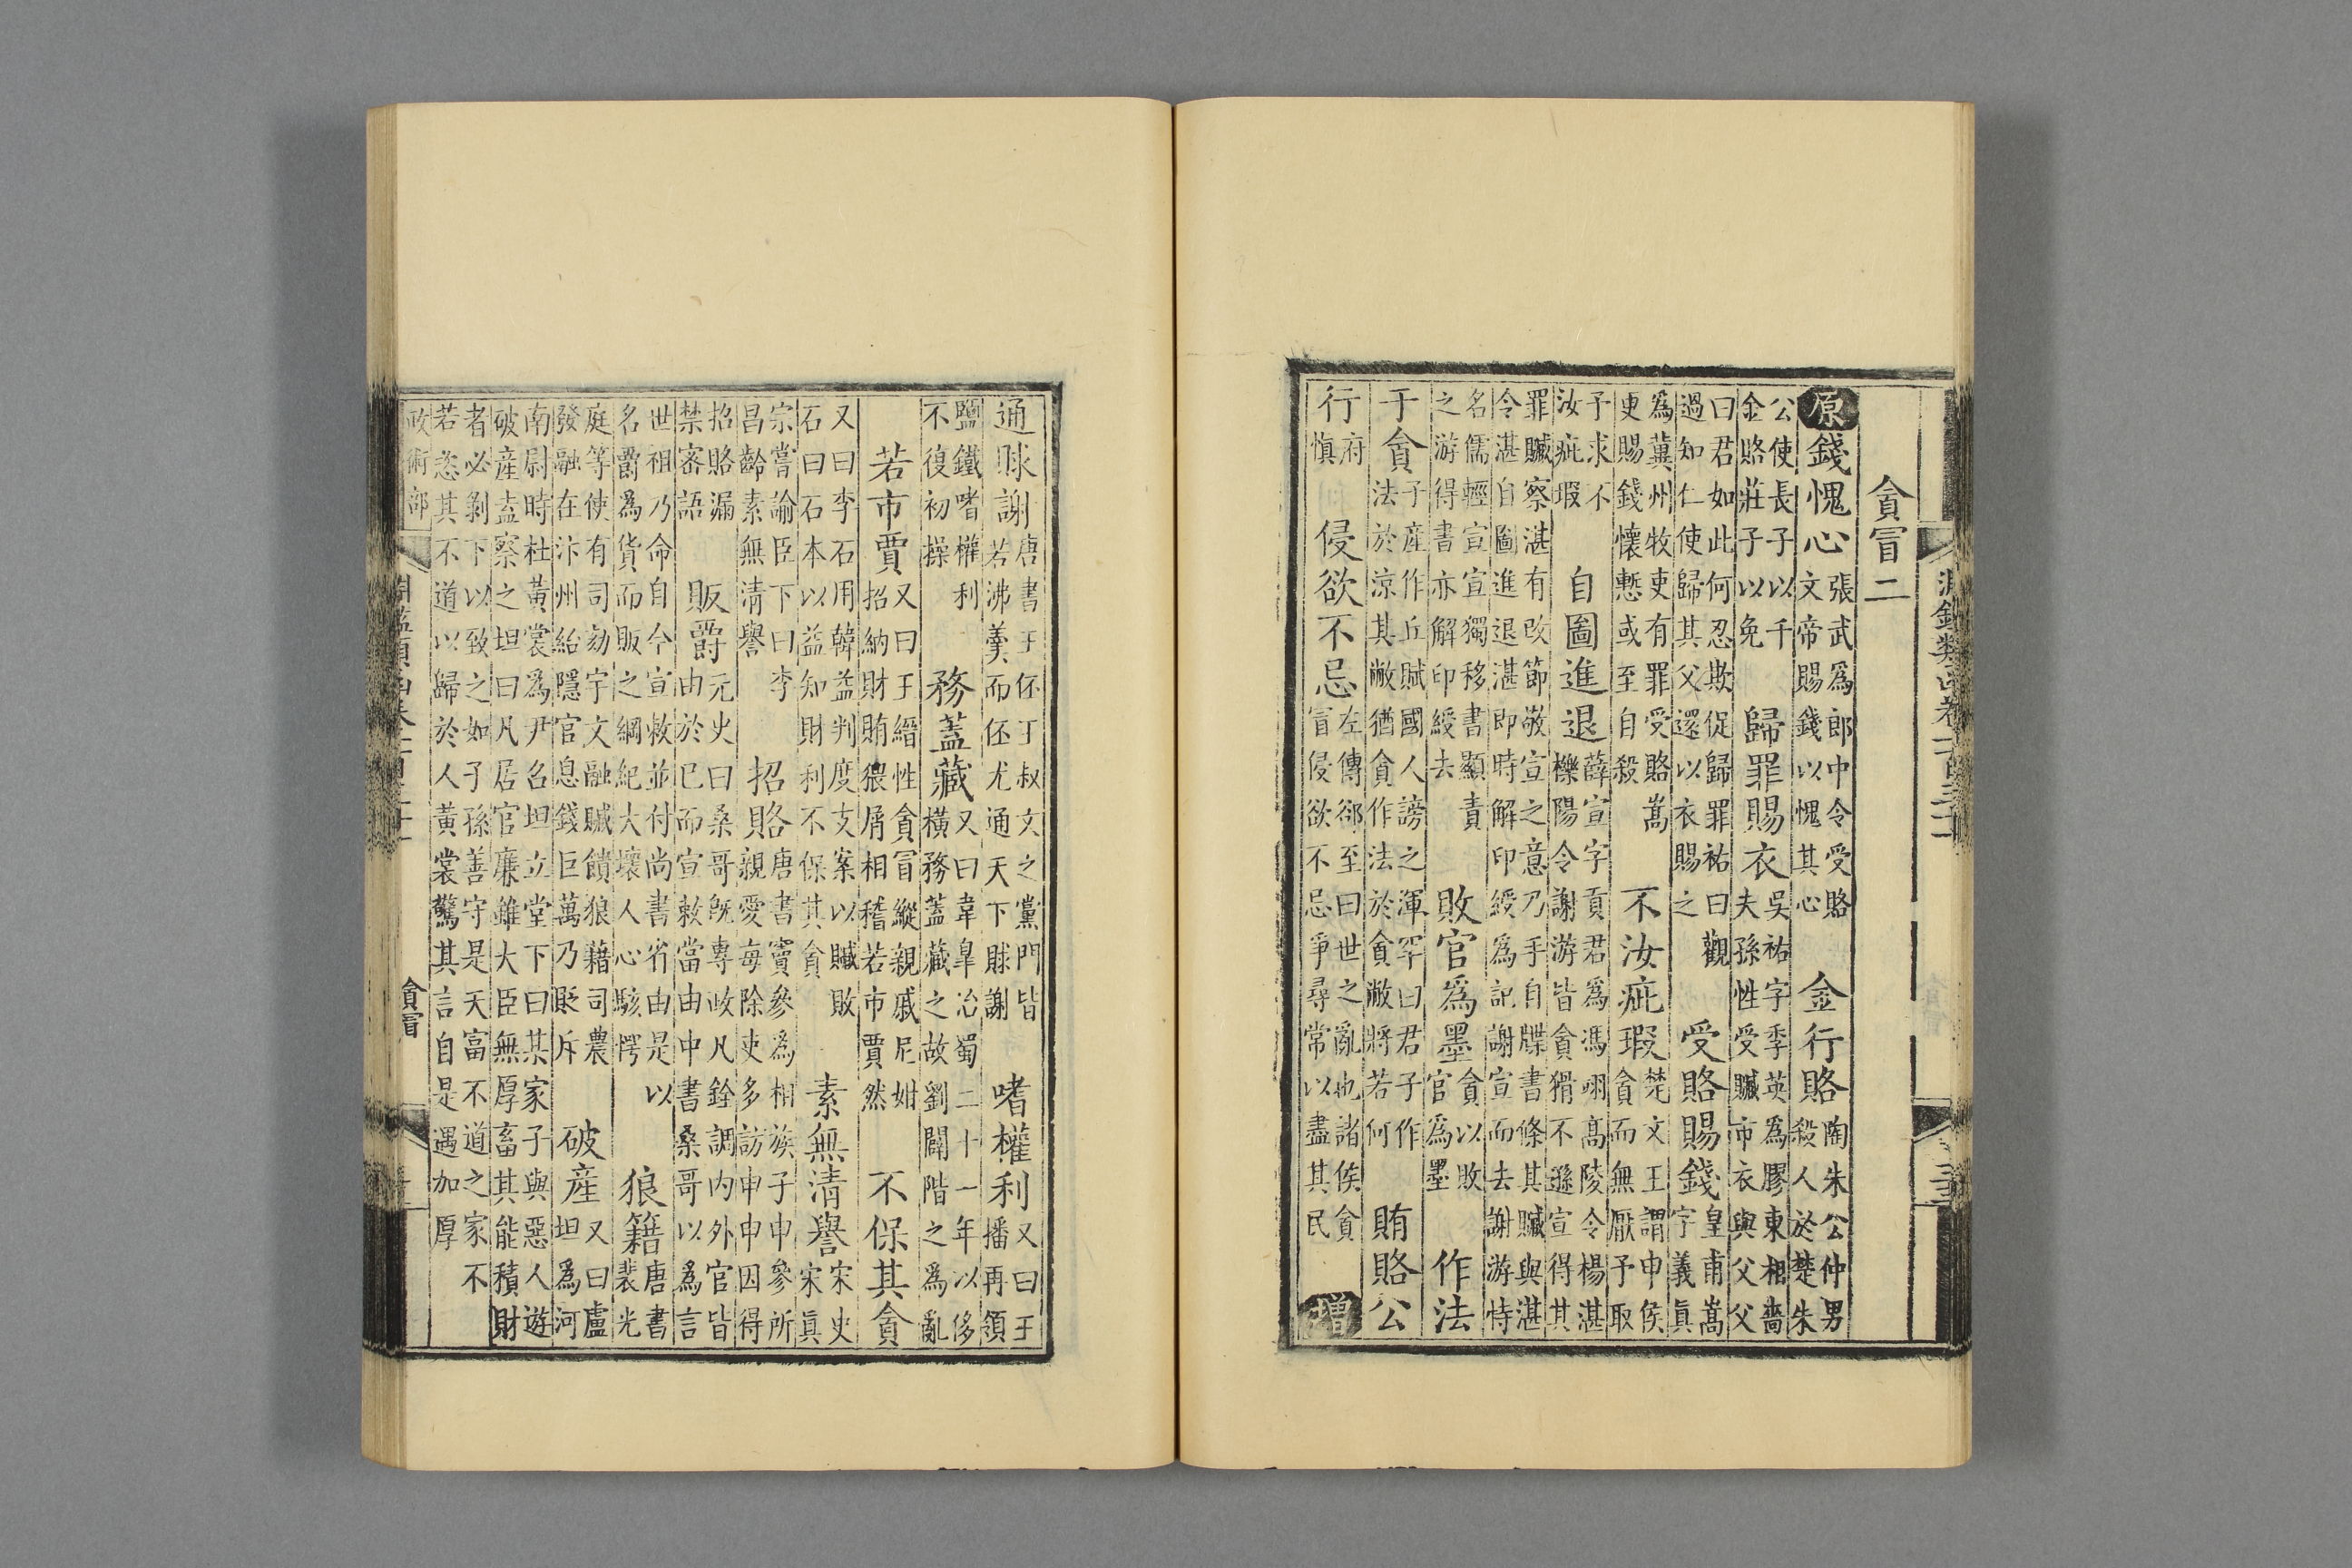 淵鑑類函卷一百三十一
貪冒二
原錢愧心張武爲郎中令受賂文帝賜錢以愧其心金行賂陶朱公仲男殺人於楚朱
公使長子以千金賂莊子以免歸罪賜衣吳祐字季英爲膠東相嗇夫孫性受贓市衣與父父
曰君如此何忍欺促歸罪祐曰觀過知仁使歸其父還以衣賜之受賂賜錢皇甫嵩字義真
爲冀州牧吏有罪受賂嵩更賜錢懷慙或至自殺不汝疵瑕楚文王謂申侯貪而無厭予取
予求不汝疵瑕自圖進退薛宣字貢君爲馮翊高陵令楊湛櫟陽令謝游皆貪猾不遜宣得其
罪贓察湛有改節敬宣之意乃手自牒書條其贓與湛令湛自圖進退湛即時解印綬爲記謝宣而去謝游恃
名儒輕宣宣獨移書顯責之游得書亦解印綬去敗官爲墨貪以敗官爲墨作法
于貪子產作丘賦國人謗之渾罕曰君子作法於涼其敝猶貪作法於貪敝將若何賄賂公
行府慎侵欲不忌左傳郤至曰世之亂也諸侯貪冒侵欲不忌爭尋常以盡其民增
通賕謝唐書王伾王叔文之黨門皆若沸羹而伾尤通天下賕謝嗜權利又曰王播再領
鹽鐵嗜權利不復初操務蓋藏又曰韋臯治蜀二十一年以侈橫務蓋藏之故劉闢階之爲亂
若市賈又曰王縉性貪冒縱親戚尼姏招納財賄猥屑相稽若市賈然不保其貪
又曰李石用韓益判度支案以贓敗石曰石本以益知財利不保其貪素無清譽宋史宋真
宗嘗諭臣下曰李昌齡素無清譽招賂唐書竇參爲相族子申參所親愛每除吏多訪申申因得
招賂漏禁密語販爵元史曰桑哥旣專政凡銓調內外官皆由於已而宣敕當由中書桑哥以爲言
世祖乃命自今宣敕並付尚書省由是以名爵爲貨而販之綱紀大壞人心駭愕狼籍唐書裴光
庭等使有司劾宇文融贓饋狼藉司農發融在汴州紿隱官息錢巨萬乃貶斥破產又曰盧坦爲河
南尉時杜黃裳爲尹召坦立堂下曰某家子與惡人遊破產盍察之坦曰凡居官廉雖大臣無厚畜其能積財
者必剝下以致之如子孫善守是天富不道之家不若恣其不道以歸於人黃裳驚其言自是遇加厚
政術部
貪冒